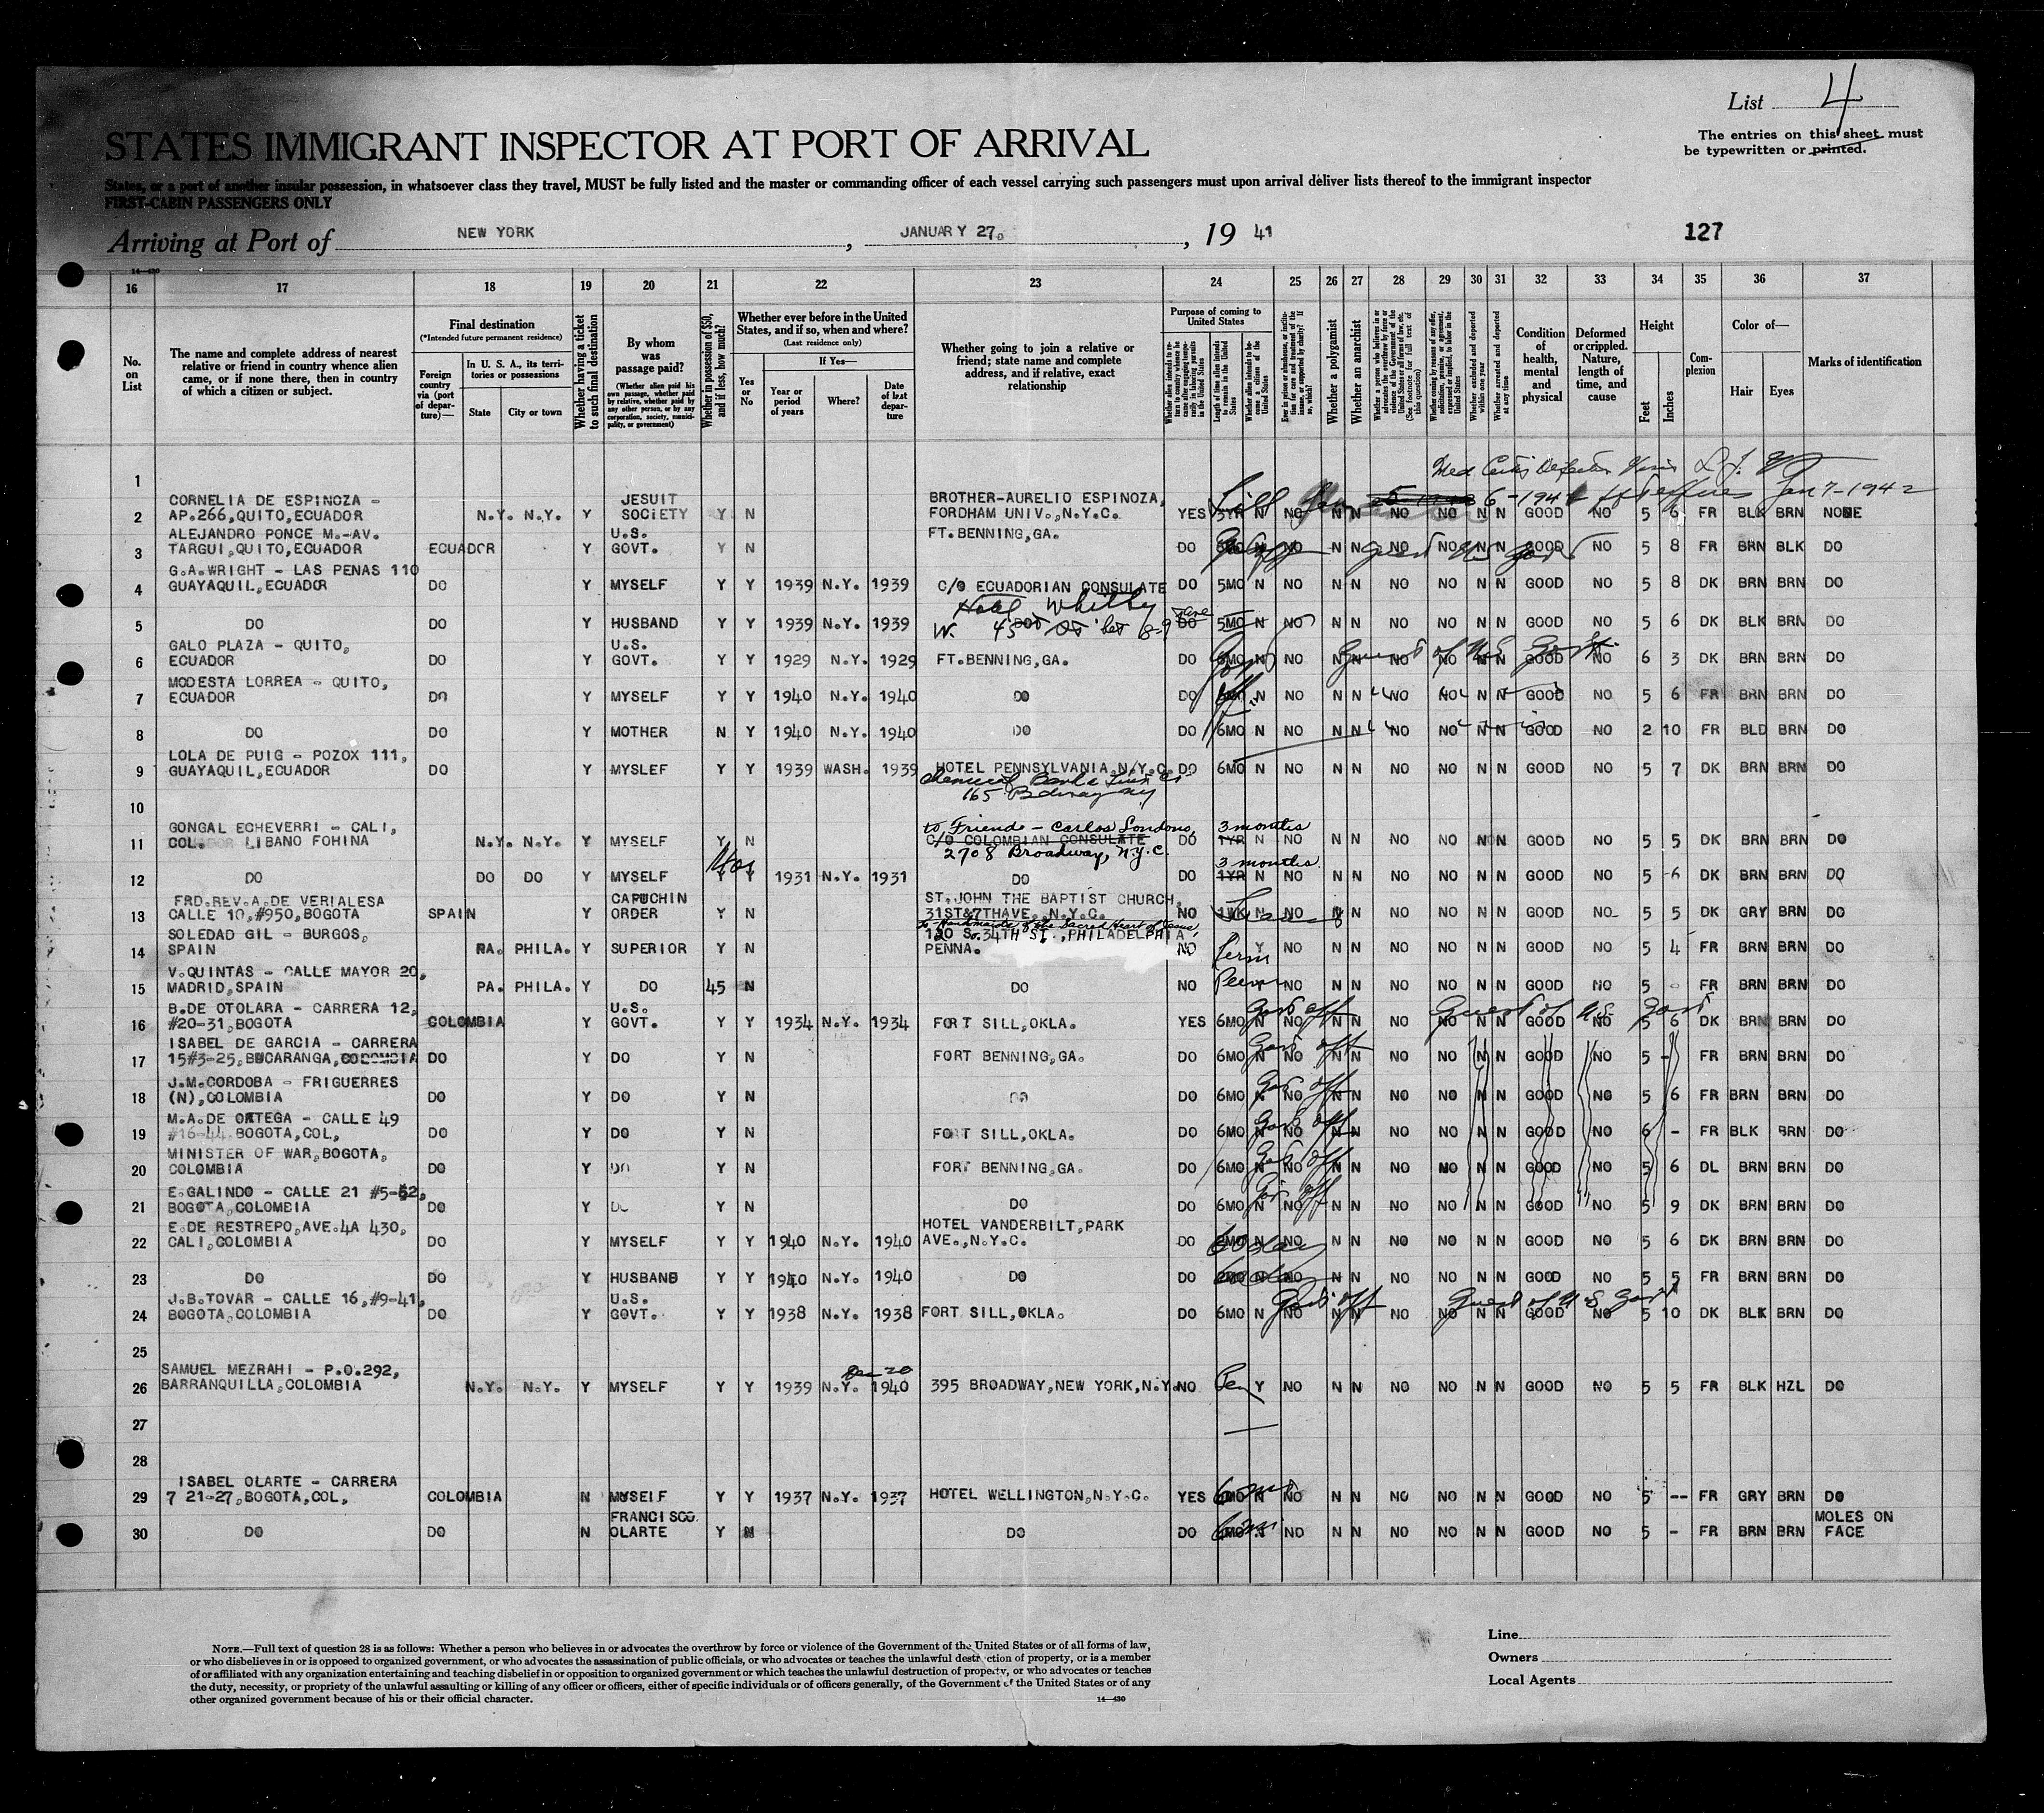 List 4
The entries on this sheet must
be typewritten or printed.
STATES IMMIGRANT INSPECTOR AT PORT OF ARRIVAL
States, or a port of another insular possession, in whatsoever class they travel, MUST be fully listed and the master or commanding officer of each vessel carrying such passengers must upon arrival deliver lists thereof to the immigrant inspector
FIRST-CABIN PASSENGERS ONLY
Arriving at Port of NEW YORK, JANUARY 27, 19 41
127
14—430
16 17 18 19 20 21 22 23 24 25 26 27 28 29 30 31 32 33 34 35 36 37
No. on List
The name and complete address of nearest relative or friend in country whence alien came, or if none there, then in country of which a citizen or subject.
Final destination
(*Intended future permanent residence)
Foreign country via (port of departure)—
In U. S. A., its territories or possessions
State
City or town
Whether having a ticket to such final destination
By whom was passage paid?
(Whether alien paid his own passage, whether paid by relative, whether paid by any other person, or by any corporation, society, municipality, or government)
Whether in possession of $50, and if less, how much?
Whether ever before in the United States, and if so, when and where?
(Last residence only)
Yes or No
If Yes—
Year or period of years
Where?
Date of last departure
Whether going to join a relative or friend; state name and complete address, and if relative, exact relationship
Purpose of coming to United States
Length of time alien intends to remain in the United States
Whether alien intends to become a citizen of the United States
Whether a polygamist
Whether an anarchist
(See footnote for full text of this question)
Whether excluded and deported within one year
Whether arrested and deported at any time
Condition of health, mental and physical
Deformed or crippled. Nature, length of time, and cause
Height
Feet
Inches
Complexion
Color of—
Hair
Eyes
Marks of identification
1
CORNELIA DE ESPINOZA - JESUIT BROTHER-AURELIO ESPINOZA,
2 AP.266,QUITO,ECUADOR N.Y. N.Y. Y SOCIETY Y N FORDHAM UNIV.,N.Y.C. YES 3YR N NO N N NO NO N N GOOD NO 5 6 FR BLK BRN NONE
Jan 7-1942
ALEJANDRO PONCE M.-AV. U.S. FT.BENNING,GA.
3 TARGUI,QUITO,ECUADOR ECUADOR Y GOVT. Y N DO N NO N N NO NO N N GOOD NO 5 8 FR BRN BLK DO
G.A.WRIGHT - LAS PENAS 110
4 GUAYAQUIL,ECUADOR DO Y MYSELF Y Y 1939 N.Y. 1939 C/O ECUADORIAN CONSULATE DO 5MO N NO N N NO NO N N GOOD NO 5 8 DK BRN BRN DO
Hotel Whitby
5 DO DO Y HUSBAND Y Y 1939 N.Y. 1939 DO DO 5MO N NO N N NO NO N N GOOD NO 5 6 DK BLK BRN DO
W. 45 St bet 8-9
GALO PLAZA - QUITO, U.S.
6 ECUADOR DO Y GOVT. Y Y 1929 N.Y. 1929 FT.BENNING,GA. DO 6MO N NO N N NO NO N N GOOD NO 6 3 DK BRN BRN DO
Guest of U.S. Govt.
MODESTA LORREA - QUITO,
7 ECUADOR DO Y MYSELF Y Y 1940 N.Y. 1940 DO DO N NO N N NO NO N N GOOD NO 5 6 FR BRN BRN DO
8 DO DO Y MOTHER N Y 1940 N.Y. 1940 DO DO 6MO N NO N N NO NO N N GOOD NO 2 10 FR BLD BRN DO
LOLA DE PUIG - POZOX 111,
9 GUAYAQUIL,ECUADOR DO Y MYSLEF Y Y 1939 WASH. 1939 HOTEL PENNSYLVANIA,N.Y.C. DO 6MO N NO N N NO NO N N GOOD NO 5 7 DK BRN BRN DO
Chemical Bank & Trust Co
165 Bdway NY
10
GONGAL ECHEVERRI - CALI, to Friend - Carlos Londono, 3 months
11 COL. LIBANO FOHINA N.Y. N.Y. Y MYSELF Y N C/O COLOMBIAN CONSULATE DO 1YR N NO N N NO NO N N GOOD NO 5 5 DK BRN BRN DO
2708 Broadway, N.Y.C.
3 months
12 DO DO DO Y MYSELF Y Y 1931 N.Y. 1931 DO DO 1YR N NO N N NO NO N N GOOD NO 5 6 DK BRN BRN DO
FRD.REV.A.DE VERIALESA CAPUCHIN ST.JOHN THE BAPTIST CHURCH,
13 CALLE 10,#950,BOGOTA SPAIN Y ORDER Y N 31ST&7THAVE.,N.Y.C. NO 1WK N NO N N NO NO N N GOOD NO 5 5 DK GRY BRN DO
to Handmaids of the Sacred Heart of Jesus,
SOLEDAD GIL - BURGOS, 120 So.34TH ST.,PHILADELPHIA
14 SPAIN PA. PHILA. Y SUPERIOR Y N PENNA. NO Perm Y NO N N NO NO N N GOOD NO 5 4 FR BRN BRN DO
V.QUINTAS - CALLE MAYOR 20,
15 MADRID,SPAIN PA. PHILA. Y DO 45 N DO NO Perm Y NO N N NO NO N N GOOD NO 5 - FR BRN BRN DO
B.DE OTOLARA - CARRERA 12, U.S.
16 #20-31,BOGOTA COLOMBIA Y GOVT. Y Y 1934 N.Y. 1934 FORT SILL,OKLA. YES 6MO N NO N N NO NO N N GOOD NO 5 6 DK BRN BRN DO
Govt off Guest of U.S. Govt
ISABEL DE GARCIA - CARRERA
17 15#3-25,BUCARANGA,COLOMBIA DO Y DO Y N FORT BENNING,GA. DO 6MO N NO N N NO NO N N GOOD NO 5 - FR BRN BRN DO
Govt off
J.M.CORDOBA - FRIGUERRES
18 (N),COLOMBIA DO Y DO Y N DO DO 6MO N NO N N NO NO N N GOOD NO 5 6 FR BRN BRN DO
Govt off
M.A.DE ORTEGA - CALLE 49
19 #16-44 BOGOTA,COL, DO Y DO Y N FORT SILL,OKLA. DO 6MO N NO N N NO NO N N GOOD NO 6 - FR BLK BRN DO
Govt off
MINISTER OF WAR,BOGOTA,
20 COLOMBIA DO Y DO Y N FORT BENNING,GA. DO 6MO N NO N N NO NO N N GOOD NO 5 6 DL BRN BRN DO
Govt off
E.GALINDO - CALLE 21 #5-52,
21 BOGOTA,COLOMBIA DO Y DO Y N DO DO 6MO N NO N N NO NO N N GOOD NO 5 9 DK BRN BRN DO
Gov off
E.DE RESTREPO,AVE.4A 430, HOTEL VANDERBILT,PARK
22 CALI,COLOMBIA DO Y MYSELF Y Y 1940 N.Y. 1940 AVE.,N.Y.C. DO 2MO N NO N N NO NO N N GOOD NO 5 6 DK BRN BRN DO
60 day
23 DO DO Y HUSBAND Y Y 1940 N.Y. 1940 DO DO 2MO N NO N N NO NO N N GOOD NO 5 5 FR BRN BRN DO
J.B.TOVAR - CALLE 16,#9-41, U.S.
24 BOGOTA,COLOMBIA DO Y GOVT. Y Y 1938 N.Y. 1938 FORT SILL,OKLA. DO 6MO N NO N N NO NO N N GOOD NO 5 10 DK BLK BRN DO
Govt off Guest of U S Govt
25
SAMUEL MEZRAHI - P.O.292, Dec 20
26 BARRANQUILLA,COLOMBIA N.Y. N.Y. Y MYSELF Y Y 1939 N.Y. 1940 395 BROADWAY,NEW YORK,N.Y. NO Y NO N N NO NO N N GOOD NO 5 5 FR BLK HZL DO
27
28
ISABEL OLARTE - CARRERA
29 7 21-27,BOGOTA,COL, COLOMBIA N MYSELF Y Y 1937 N.Y. 1937 HOTEL WELLINGTON,N.Y.C. YES 6MO N NO N N NO NO N N GOOD NO 5 -- FR GRY BRN DO
FRANCISCO MOLES ON
30 DO DO N OLARTE Y N DO DO 6MO N NO N N NO NO N N GOOD NO 5 - FR BRN BRN FACE
NOTE.—Full text of question 28 is as follows: Whether a person who believes in or advocates the overthrow by force or violence of the Government of the United States or of all forms of law,
or who disbelieves in or is opposed to organized government, or who advocates the assassination of public officials, or who advocates or teaches the unlawful destruction of property, or is a member
of or affiliated with any organization entertaining and teaching disbelief in or opposition to organized government or which teaches the unlawful destruction of property, or who advocates or teaches
the duty, necessity, or propriety of the unlawful assaulting or killing of any officer or officers, either of specific individuals or of officers generally, of the Government of the United States or of any
other organized government because of his or their official character.
14—430
Line
Owners
Local Agents